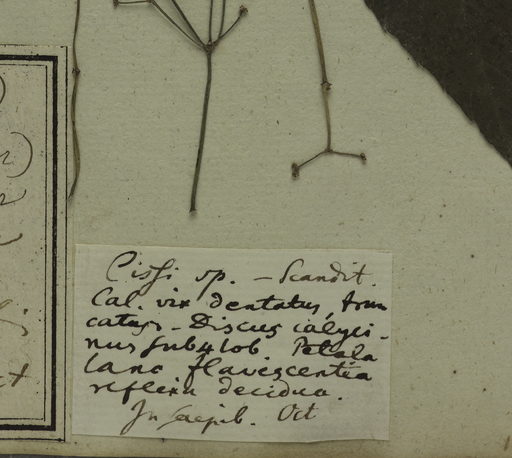 Cissi sp. – Scandit.
Cal. vix dentatus, trun
catus – Discus calyci-
nus sub4lob. Petala
lana flavescentia
reflexa decidua.
In Saepib. Oct